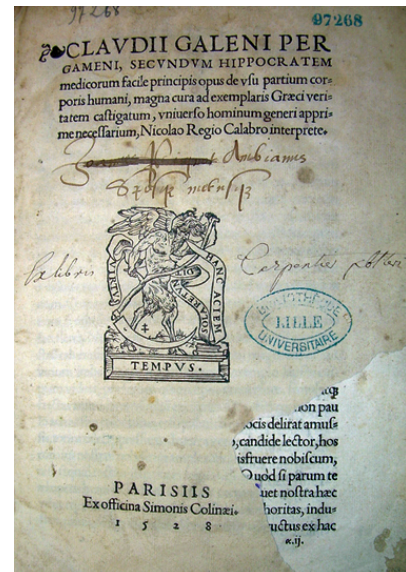 97268
97268
CLAVDII GALENI PER
GAMENI, SECVNDVM HIPPOCRATEM
medicorum facile principis opus de vsu partium cor-
poris humani, magna cura ad exemplaris Græci veri-
tatem castigatum, vniuerso hominum generi appri-
me necessarium, Nicolao Regio Calabro interprete.
Ambianus
HANC ACIEM
Exlibris Carpentier
BIBLIOTHÈQUE
LILLE
UNIVERSITAIRE
TEMPVS.
non pau
ocis delirat amus-
, candide lector, hos
isfruere nobiscum,
Quòd si parum te
uet nostra hæc
horitas, indu-
uctus ex hac
α.ij.
PARISIIS
Ex officina Simonis Colinæi.
1528